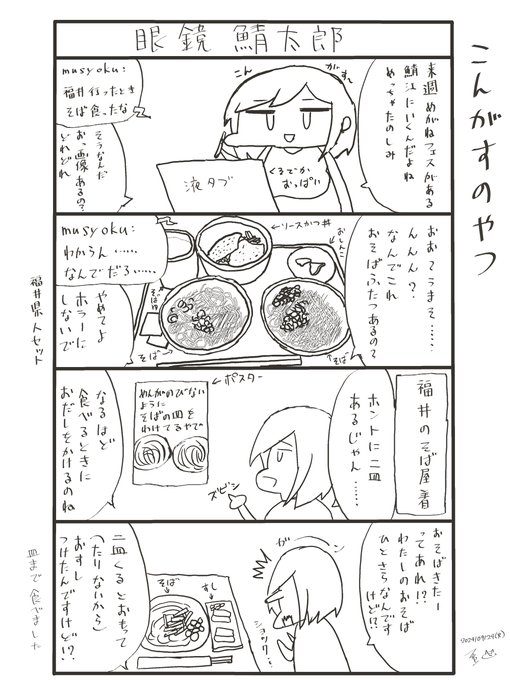 こんがすのやつ
眼鏡鯖太郎
こん
がすー
来週めがねフェスがある
鯖江にいくんだよね
めっちゃたのしみ
musyoku:
福井行ったとき
そば食ったな
そうなんだ
おっ画像あるの?
どれどれ
くるでか
おっぱい
液タブ
おおーうまそ……
んんん?
なんでこれ
おそばふたつあるの?
←ソースかつ丼
おしんこ
そば
そば
musyoku:
わからん……
なんでだろ……
やめてよ
ホラーに
しないで
福井県人セット
福井のそば屋着
ホントに二皿
あるじゃん……
←ポスター
めんがのびない
ように
そばの皿を
わけてるやで
ズビシ
なるほど
食べるときに
おだしをかけるのね
おそばきたー
ってあれ!?
わたしのおそば
ひとさらなんです
けど!?
ガーン
そば
すし
ショック…
二皿くるとおもって
(たりないから)
おすし
つけたんですけど!?
皿まで食べました